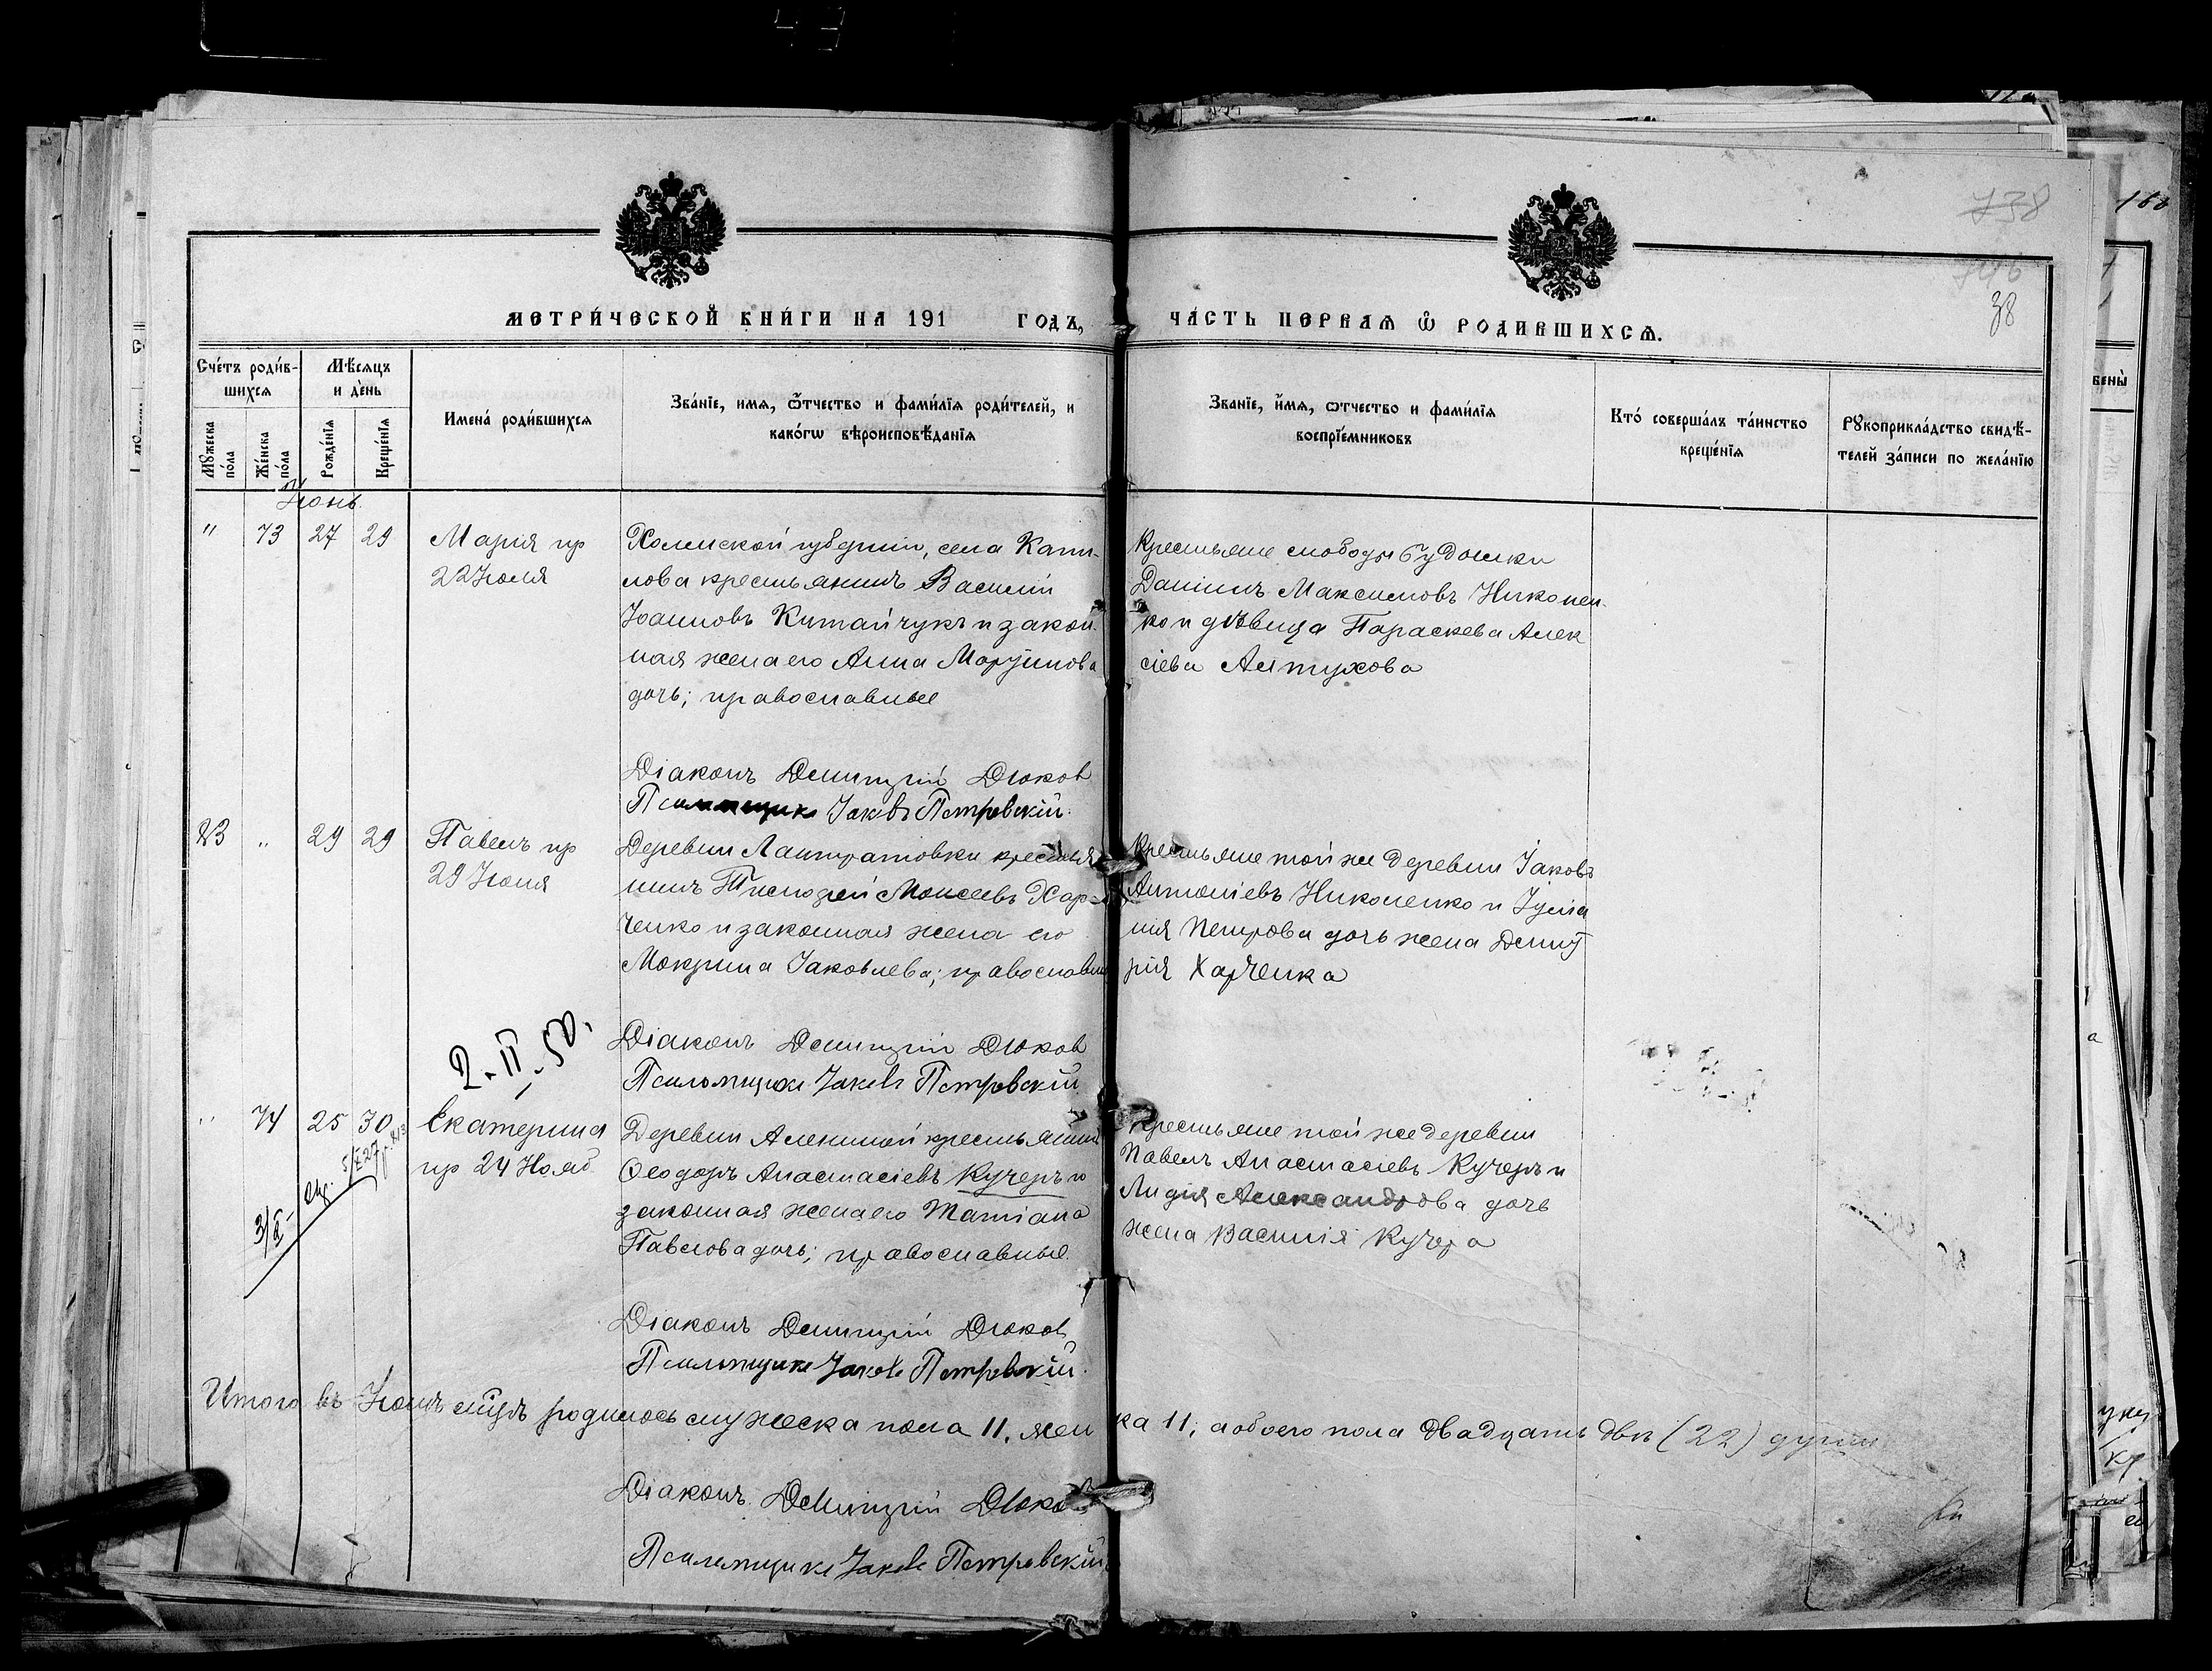 738
38
МЕТРИ́ЧЕСКОЙ КНИ́ГИ НА 191 ГОДЪ,
ЧА́СТЬ ПЕРВАѦ Ѡ҆ РОДИВШИХСѦ.
Сче́тъ роди́в-
шихсѧ
Мꙋжеска по́ла
Же́нска по́ла
Мѣ́сѧцъ
и де́нь
Рожде́нїѧ
Креще́нїѧ
Имена́ роди́вшихсѧ
Зва́нїе, имѧ, ѻ҆́тчество и фами́лїѧ роди́телей, и
како́гѡ вѣроисповѣ́данїѧ
Зва́нїе, и҆мѧ, ѻтчество и фами́лїѧ
воспрїе́мниковъ
Кто́ соверша́лъ та́инство
креще́нїѧ
Рꙋкоприкла́дство свидѣ́-
телей за́писи по жела́нїю
Іюнь.
" 73 27 29
Марія пр
22 Іюля
Холмской губерніи, села
крестьянинъ Василій
Іоанновъ Китайчукъ и закон-
ная жена его Анна Мартинова
дочь; православные
Крестьяне слободы Будошки
Даніилъ Максимовъ Николен-
ко и дѣвица Параскева Алек
сіева Алтухова
Діаконъ Димитрій Дюков
Псаломщикъ Іаковъ Петровскій.
83 " 29 29
Павелъ пр
29 Іюня
Деревни Лантратовки крестья
нинъ Моисеевъ Хар-
ченко и законная жена его
Мокрина Іаковлева; православные
Крестьяне той же деревни Іаковъ
Антоніевъ Николенко и Іулiа
нія Петрова дочь жена Димит
рія Харченка
2-II-50.
Діаконъ Димитрій Дюков
Псаломщикъ Іаковъ Петровскій
" 74 25 30
Екатерина
пр 24 Нояб.
Деревни крестьянинъ
Ѳеодоръ Анастасіевъ Кучеръ и
законная жена его Татіана
Павлова дочь; православные.
Крестьяне той же деревни
Павелъ Анастасіевъ Кучеръ и
Лидія Александрова дочь
жена Василія Кучера
Діаконъ Димитрій Дюков
Псаломщикъ Іаковъ Петровскій.
Итого въ Іюнѣ мцѣ родилось мужеска пола 11, жен ка 11, а обоего пола двадцать двѣ (22) души
Діаконъ Димитрій Дюков
Псаломщикъ Іаковъ Петровскій